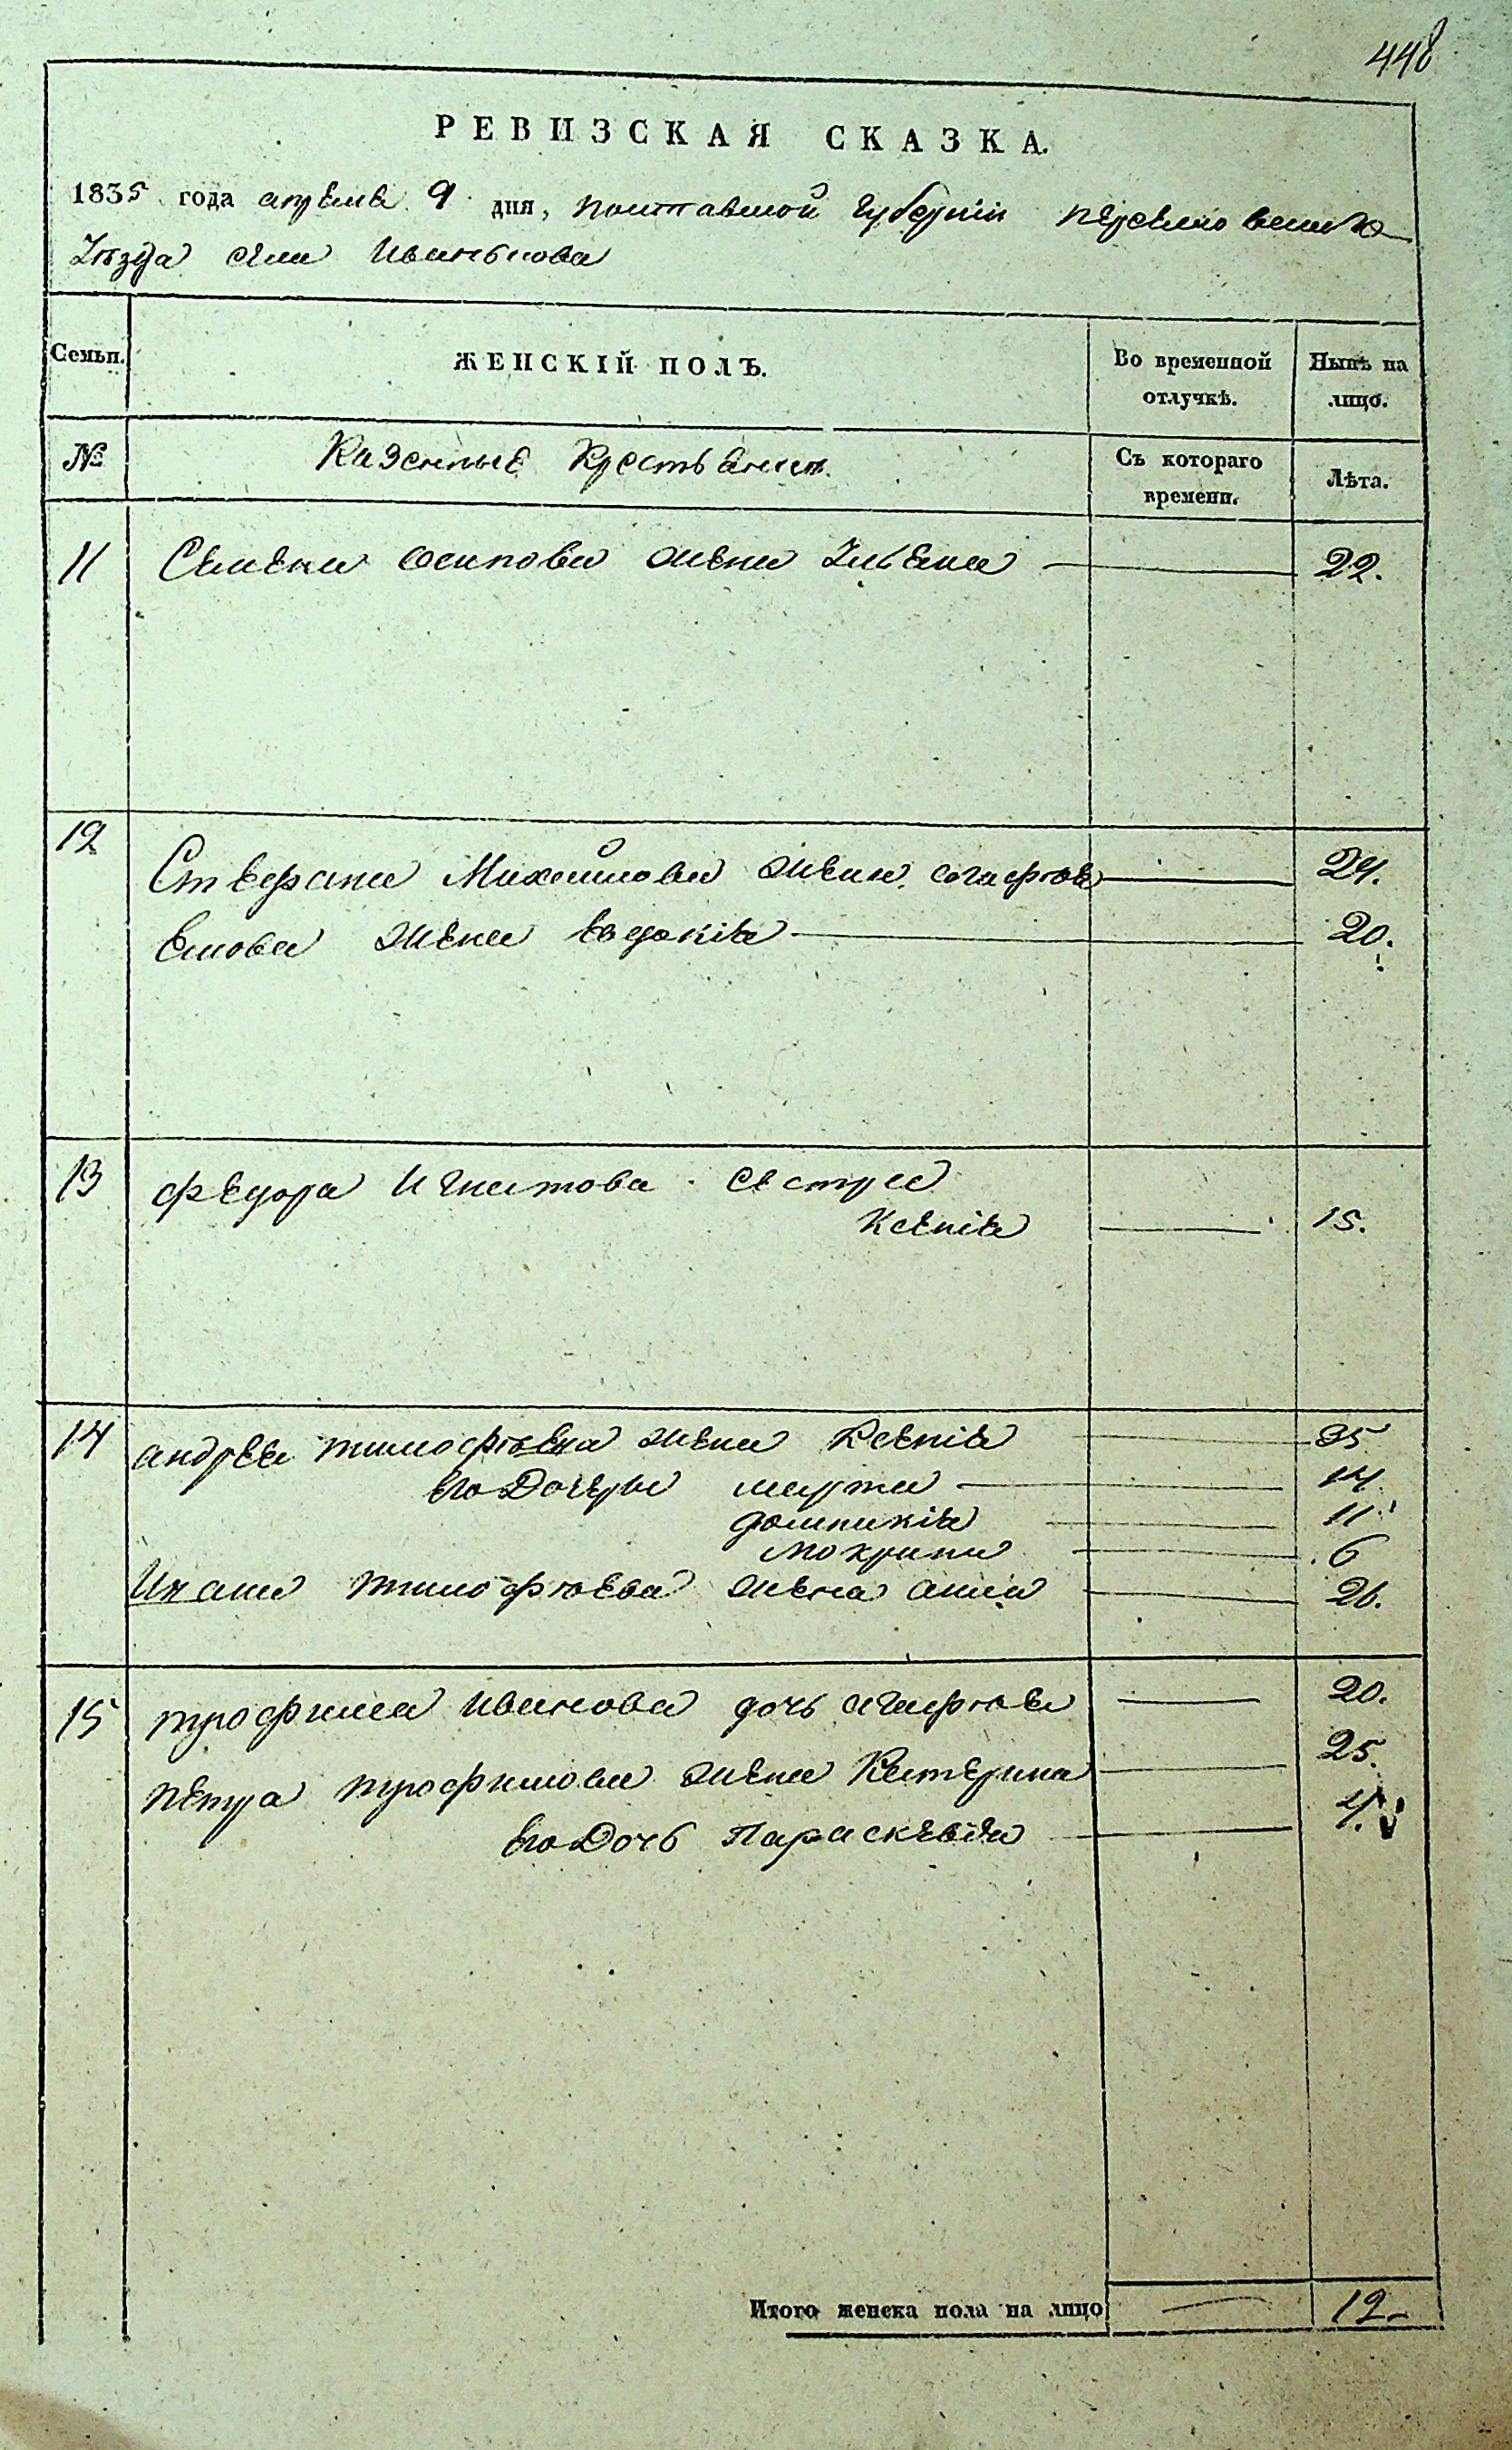 448
РЕВИЗСКАЯ СКАЗКА.
1835 года апреля 9 дня, полтавской губернии переясловского
Уезда села Иванькова
Семьи. ЖЕНСКІЙ ПОЛЪ. Во временной отлучкѣ. Нынѣ на лицо.
№ Казенные Крестьянин Съ котораго времени. Лѣта.
11 Семена осипова жена Ульяна 22.
12 Стефана Михайлова жена агафія 24.
Емова жена евдокія 20.
13 федора Игнатова сестра
Ксенія 15.
14 андрея тимофѣева жена Ксенія 35
его Дочеры марта 14.
домникія 11
мокрина 6
Ивана тимофѣева жена анна 26.
15 трофима Иванова дочь агафія 20.
петра трофимова жена Катерина 25.
его Дочь Параскевія 4.
Итого женска пола на лицо 12